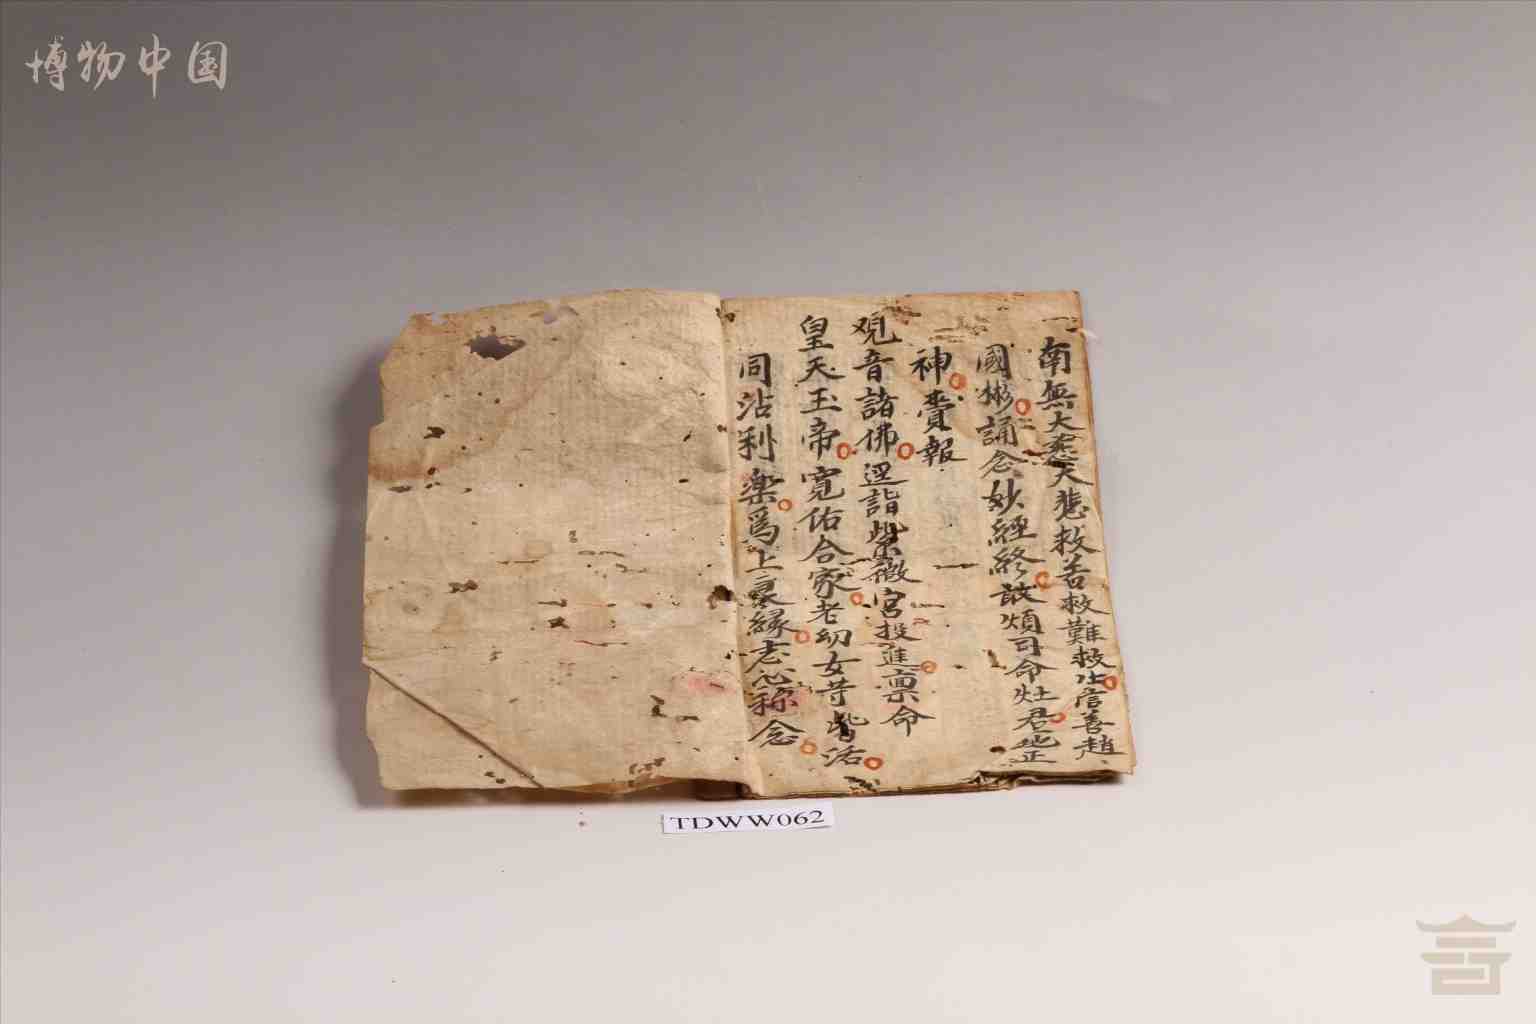 博物中国
南無大慈大悲救苦救難救亡信善趙
國彬誦念妙經終敬煩司命灶君地正
神賫報
观音諸佛逕詣紫微宮投進稟命
皇天玉帝寬佑合家老幼女等皆活
同沾利樂爲上良縁志心称念
TDWW062